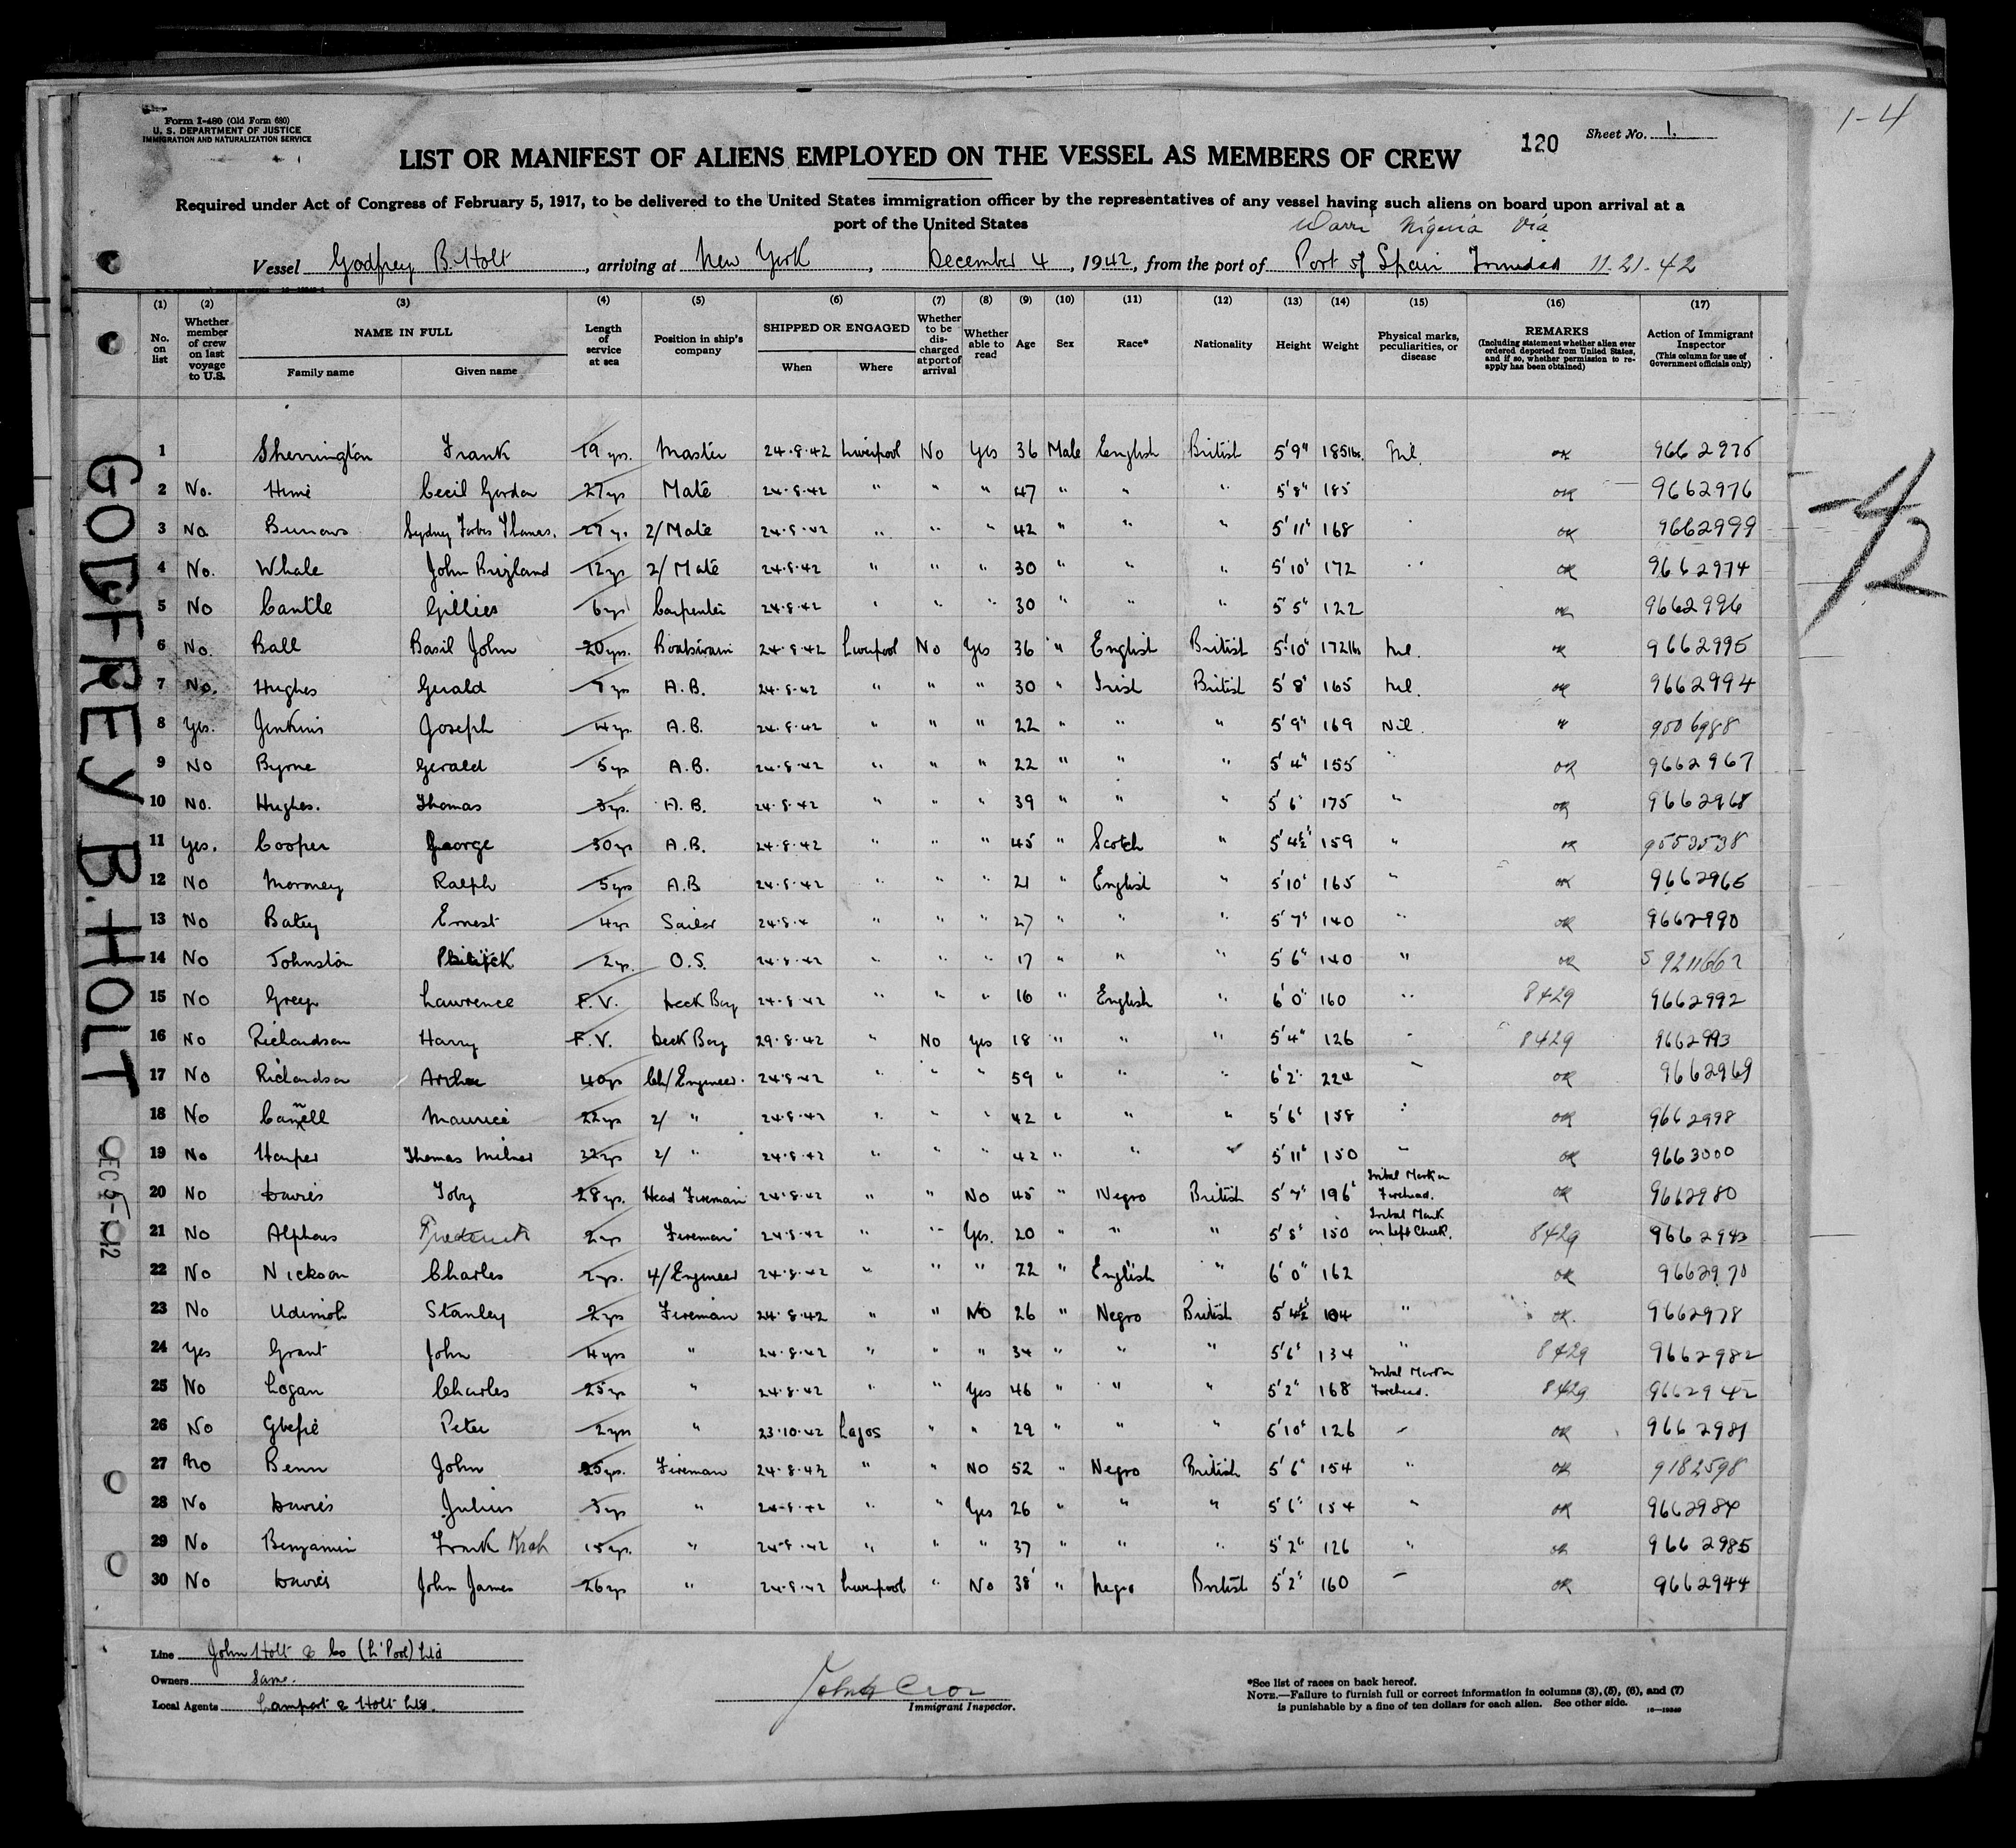 Form I-480 (Old Form 680)
U. S. DEPARTMENT OF JUSTICE
IMMIGRATION AND NATURALIZATION SERVICE
120
Sheet No. 1.
1-4
LIST OR MANIFEST OF ALIENS EMPLOYED ON THE VESSEL AS MEMBERS OF CREW
Required under Act of Congress of February 5, 1917, to be delivered to the United States immigration officer by the representatives of any vessel having such aliens on board upon arrival at a
port of the United States
Warri Nigeria Via
Vessel Godfrey B. Holt, arriving at New York, December 4, 1942, from the port of Port of Spain Trinidad 11.21.42
(1) (2) (3) (4) (5) (6) (7) (8) (9) (10) (11) (12) (13) (14) (15) (16) (17)
No. on list
Whether member of crew on last voyage to U.S.
NAME IN FULL
Family name Given name
Length of service at sea
Position in ship's company
SHIPPED OR ENGAGED
When Where
Whether to be discharged at port of arrival
Whether able to read
Age
Sex
Race*
Nationality
Height
Weight
Physical marks, peculiarities, or disease
REMARKS
(Including statement whether alien ever ordered deported from United States, and if so, whether permission to re-apply has been obtained)
Action of Immigrant Inspector
(This column for use of Government officials only)
1 Sherrington Frank 19 yrs. Master 24.8.42 Liverpool No Yes 36 Male English British 5'9" 185 lbs. Nil. OK 9662975
2 No. Hime Cecil Gordon 27 yrs Mate 24.8.42 " " " 47 " " " 5'8" 185 OK 9662976
3 No Burrows Sydney Forbes Thomas. 27 y. 2/Mate 24.8.42 " " " 42 " " " 5'11" 168 OK 9662999
4 No. Whale John 12 yr 2/Mate 24.8.42 " " " 30 " " " 5'10" 172 " OK 9662974
5 No Cantle Gillies 6 yrs Carpenter 24.8.42 " " " 30 " " " 5'5" 122 OK 9662996
6 No. Ball Basil John 20 yrs. Boatswain 24.8.42 Liverpool No Yes 36 " English British 5'10" 172 lbs Nil. OK 9662995
7 No. Hughes Gerald 7 yrs A.B. 24.8.42 " " " 30 " Irish British 5'8" 165 Nil. OK 9662994
8 Yes. Jenkins Joseph 4 yr. A.B. 24.8.42 " " " 22 " " " 5'9" 169 Nil. " 9506988
9 No Byrne Gerald 5 yrs A.B. 24.8.42 " " " 22 " " " 5'4" 155 " OK 9662967
10 No. Hughes. Thomas 3 yrs. A.B. 24.8.42 " " " 39 " " " 5'6" 175 " OK 9662968
11 Yes. Cooper George 30 yrs A.B. 24.8.42 " " " 45 " Scotch " 5'4½" 159 " OK 9553538
12 No Moroney Ralph 5 yrs A.B 24.8.42 " " " 21 " English " 5'10" 165 " OK 9662965
13 No Batey Ernest 4 yr Sailor 24.8.4 " " " 27 " " " 5'7" 140 " OK 9662990
14 No Johnston 2 yr. O.S. 24.8.42 " " " 17 " " " 5'6" 140 " OK 5 9211662
15 No Greig Lawrence F.V. Deck Boy 24.8.42 " " " 16 " English " 6'0" 160 " 8429 9662992
16 No Richardson Harry F.V. Deck Boy 29.8.42 " No Yes 18 " " " 5'4" 126 " 8429 9662993
17 No Richardson Arthur 40 yr Ch/Engineer. 24.8.42 " " " 59 " " " 6'2" 224 " OK 9662969
18 No Cannell Maurice 22 yrs 2/ " 24.8.42 " " " 42 " " " 5'6" 158 " OK 9662998
19 No Harper Thomas Milner 22 yr 2/ " 24.8.42 " " " 42 " " " 5'11" 150 " OK 9663000
20 No Davies Toby 28 yrs. Head Fireman 24.8.42 " " No 45 " Negro British 5'7" 196 Tribal Mark on Forehead. OK 9662980
21 No Alphaus Frederick 2 yr Fireman 24.8.42 " " Yes. 20 " " " 5'8" 150 Tribal Mark on Left Cheek. 8429 9662943
22 No Nickson Charles 2 yrs. 4/Engineer 24.8.42 " " " 22 " English " 6'0" 162 OK 9662970
23 No Udimoh Stanley 2 yrs Fireman 24.8.42 " " No 26 " Negro British 5'4½" 104 " OK. 9662978
24 Yes Grant John 4 yrs " 24.8.42 " " " 34 " " " 5'6" 134 " 8429 9662982
25 No Logan Charles 25 yr " 24.8.42 " " Yes 46 " " " 5'2" 168 Tribal Mark on Forehead. 8429 9662942
26 No Gbefie Peter 2 yrs " 23.10.42 Lagos " " 29 " " " 5'10" 126 " OK 9662981
27 No Benn John 25 yrs. Fireman 24.8.42 " " No 52 " Negro British 5'6" 154 " OK 9182598
28 No Davies Julius 3 yr " 24.8.42 " " Yes 26 " " " 5'6" 154 " OK 9662984
29 No Benjamin Frank 15 yr. " 24.8.42 " " " 37 " " " 5'2" 126 " OK 9662985
30 No Davies John James 26 yr " 24.8.42 Liverpool " No 38 " Negro British 5'2" 160 " OK 9662944
GODFREY B. HOLT
Line John Holt & Co (L'Pool) Ltd
Owners Same.
Local Agents Lamport & Holt Ltd.
Immigrant Inspector.
*See list of races on back hereof.
NOTE.—Failure to furnish full or correct information in columns (3), (5), (6), and (7)
is punishable by a fine of ten dollars for each alien. See other side.